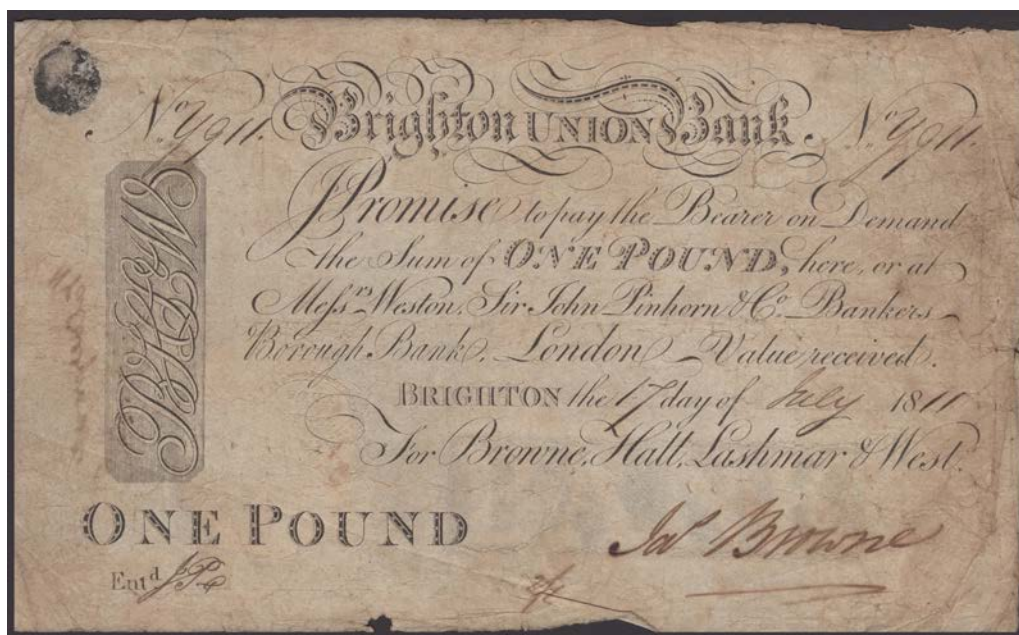 No. Brighton UNION Bank. No.
I Promise to pay the Bearer on Demand
the Sum of ONE POUND, here, or at
Messrs Weston, Sir John Pinhorn & Co. Bankers
Borough Bank, London Value received.
BRIGHTON the 17 day of July 1811
For Browne, Hall, Lashmar & West.
ONE POUND
Jas Browne
Entd